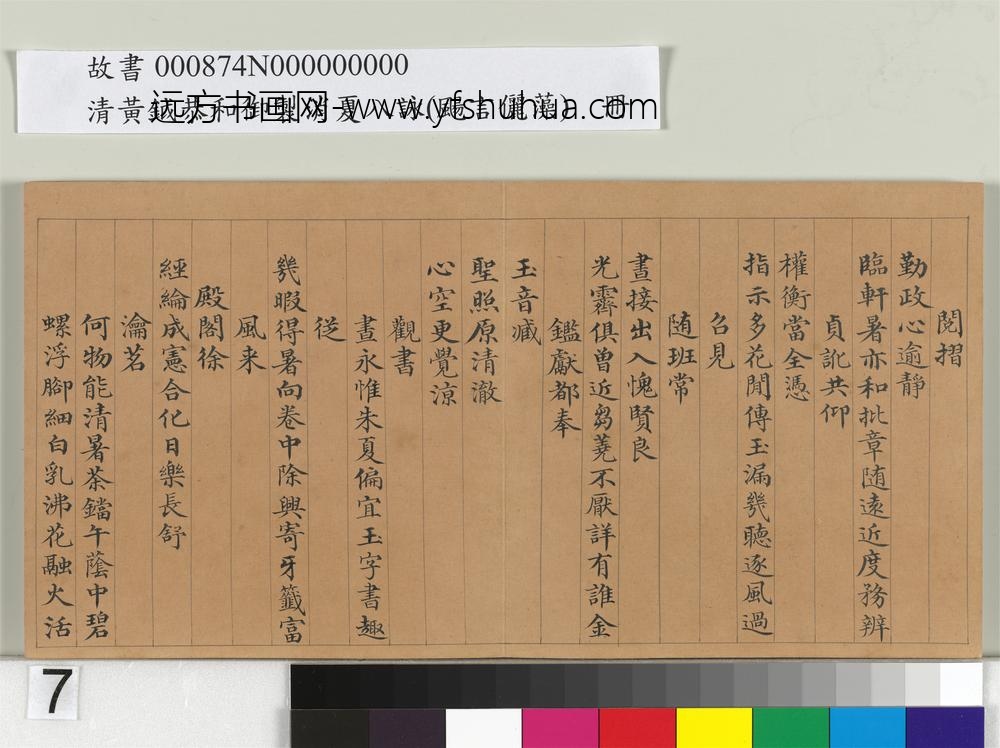 故書 000874N000000000
清黃鉞恭和御製夏詠
远方书画网-www.yfshuhua.com
閱摺
勤政心逾靜
臨軒暑亦和批章随遠近度務辨
貞訛共仰
權衡當全憑
指示多花閒傳玉漏幾聽逐風過
召見
随班常
晝接出入愧賢良
光霽俱曾近芻蕘不厭詳有誰金
鑑獻都奉
玉音臧
聖照原清澈
心空更覺涼
觀書
晝永惟朱夏偏宜玉字書趣
從
幾暇得暑向卷中除興寄牙籤富
風来
殿閣徐
經綸成憲合化日樂長舒
瀹茗
何物能清暑茶鐺午蔭中碧
螺浮腳細白乳沸花融火活
7